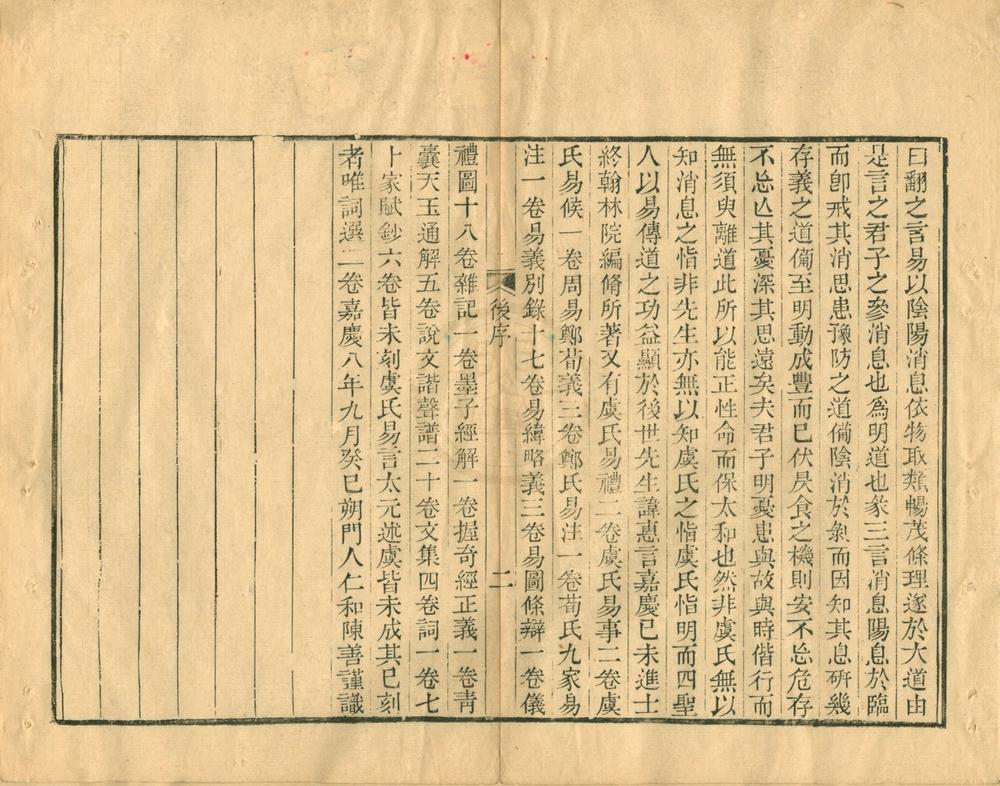 曰翻之言易以陰陽消息依物取類暢茂條理遂於大道由
是言之君子之參消息也爲明道也彖三言消息陽息於臨
而卽戒其消思患豫防之道備陰消於剝而因知其息硏幾
存義之道備至明動成豐而巳伏昃食之機則安不忘危存
不忘亾其憂深其思遠矣夫君子明憂患與故與時偕行而
無須臾離道此所以能正性命而保太和也然非虞氏無以
知消息之恉非先生亦無以知虞氏之恉虞氏恉明而四聖
人以易傳道之功益顯於後世先生諱惠言嘉慶己未進士
終翰林院編脩所著又有虞氏易禮二卷虞氏易事二卷虞
氏易候一卷周易鄭荀義三卷鄭氏易注一卷荀氏九家易
注一卷易義別錄十七卷易緯略義三卷易圖條辯一卷儀
後序
二
禮圖十八卷雜記一卷墨子經解一卷握奇經正義一卷靑
囊天玉通解五卷說文諧聲譜二十卷文集四卷詞一卷七
十家賦鈔六卷皆未刻虞氏易言太元述虞皆未成其已刻
者唯詞選二卷嘉慶八年九月癸巳朔門人仁和陳善謹識